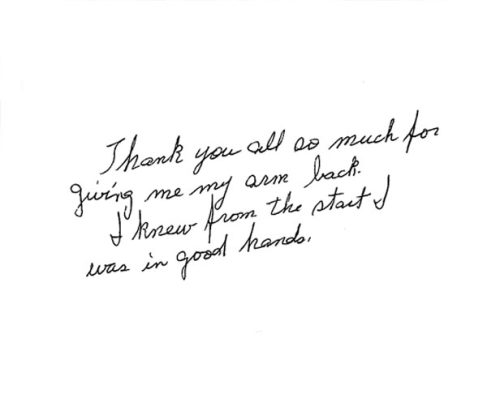 Thank you all so much for
giving me my arm back.
I knew from the start I
was in good hands.